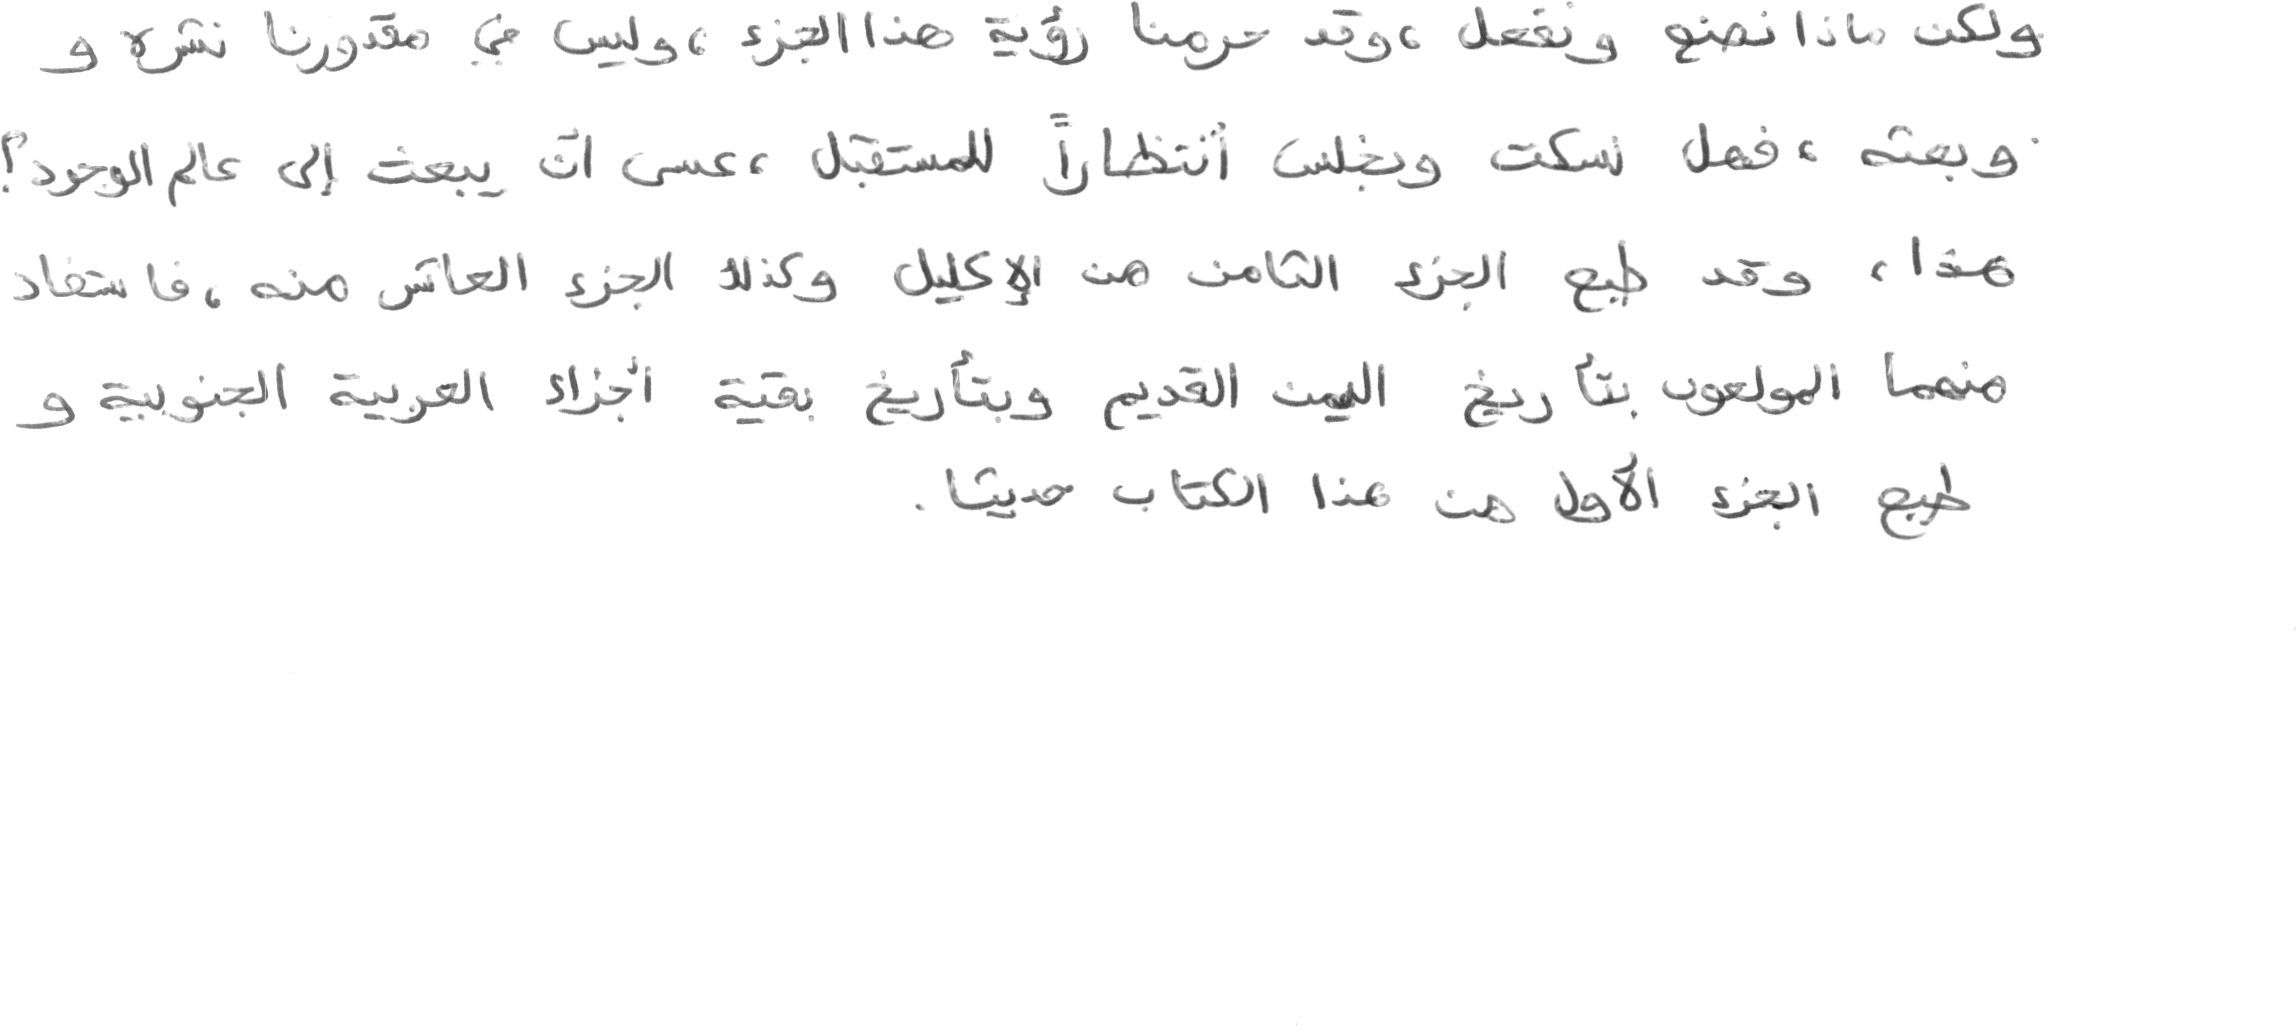 ولكن ماذا نصنع ونفعل ، وقد حرمنا رؤية هذا الجزء ، وليس في مقدورنا نشره و
وبعثه ، فهل نسكت ونجلس أنتظاراً للمستقبل ، عسى أن يبعث إلى عالم الوجود ؟
هذا ، وقد طبع الجزء الثامن من الإكليل وكذلك الجزء العاشر منه ، فاستفاد
منهما المولعون بتأريخ اليمن القديم وبتأريخ بقية أجزاء العربية الجنوبية و
طبع الجزء الأول من هذا الكتاب حديثا .